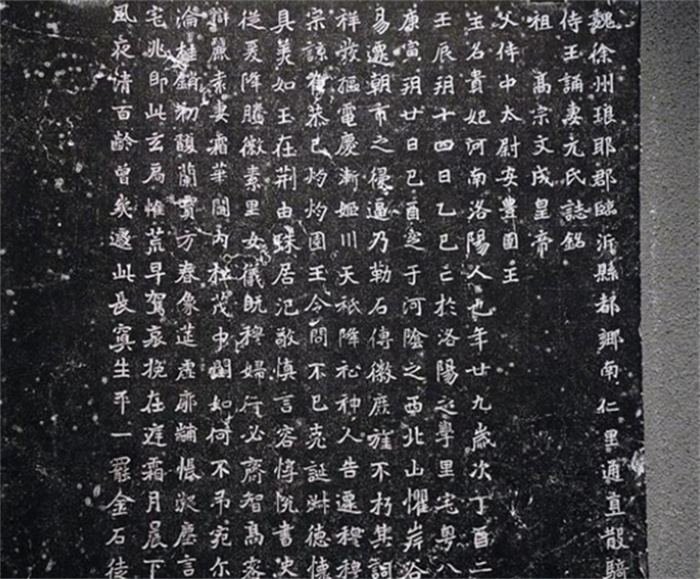 魏徐州琅耶郡臨沂縣都鄉南仁里通直散騎
侍王誦妻元氏誌銘
祖高宗文成皇帝
父侍中太尉安豐圉王
主名貴妃河南洛陽人也年廿九歲次丁酉二
壬辰玥十四日乙巳亡於洛陽之學里宅粵八
庚寅玥廿日己酉窆于河陰之西北山懼岸谷
易遷朝市之侵逼乃勒石傳徽庶旌不朽其詞
祥發樞電慶漸姬川天祇降祉神人告遷穆穆
宗諒恭已灼灼圉王令問不已克誕淑德懷
具美如玉在荊由珠居汜敬慎言容惇悅書史
從爰降騰徽素里女儀既穆婦行必齊智高密
辯麗素妻霜華閫內桂茂中閨如何不弔宛尔
淪桂銷初馥蘭實方春像筵虛廓黼帳凝塵言
宅兆即此玄扃惟荒早駕哀挽在庭霜月晨下
風夜清百齡曾矣遽此長冥生平一罷金石徒